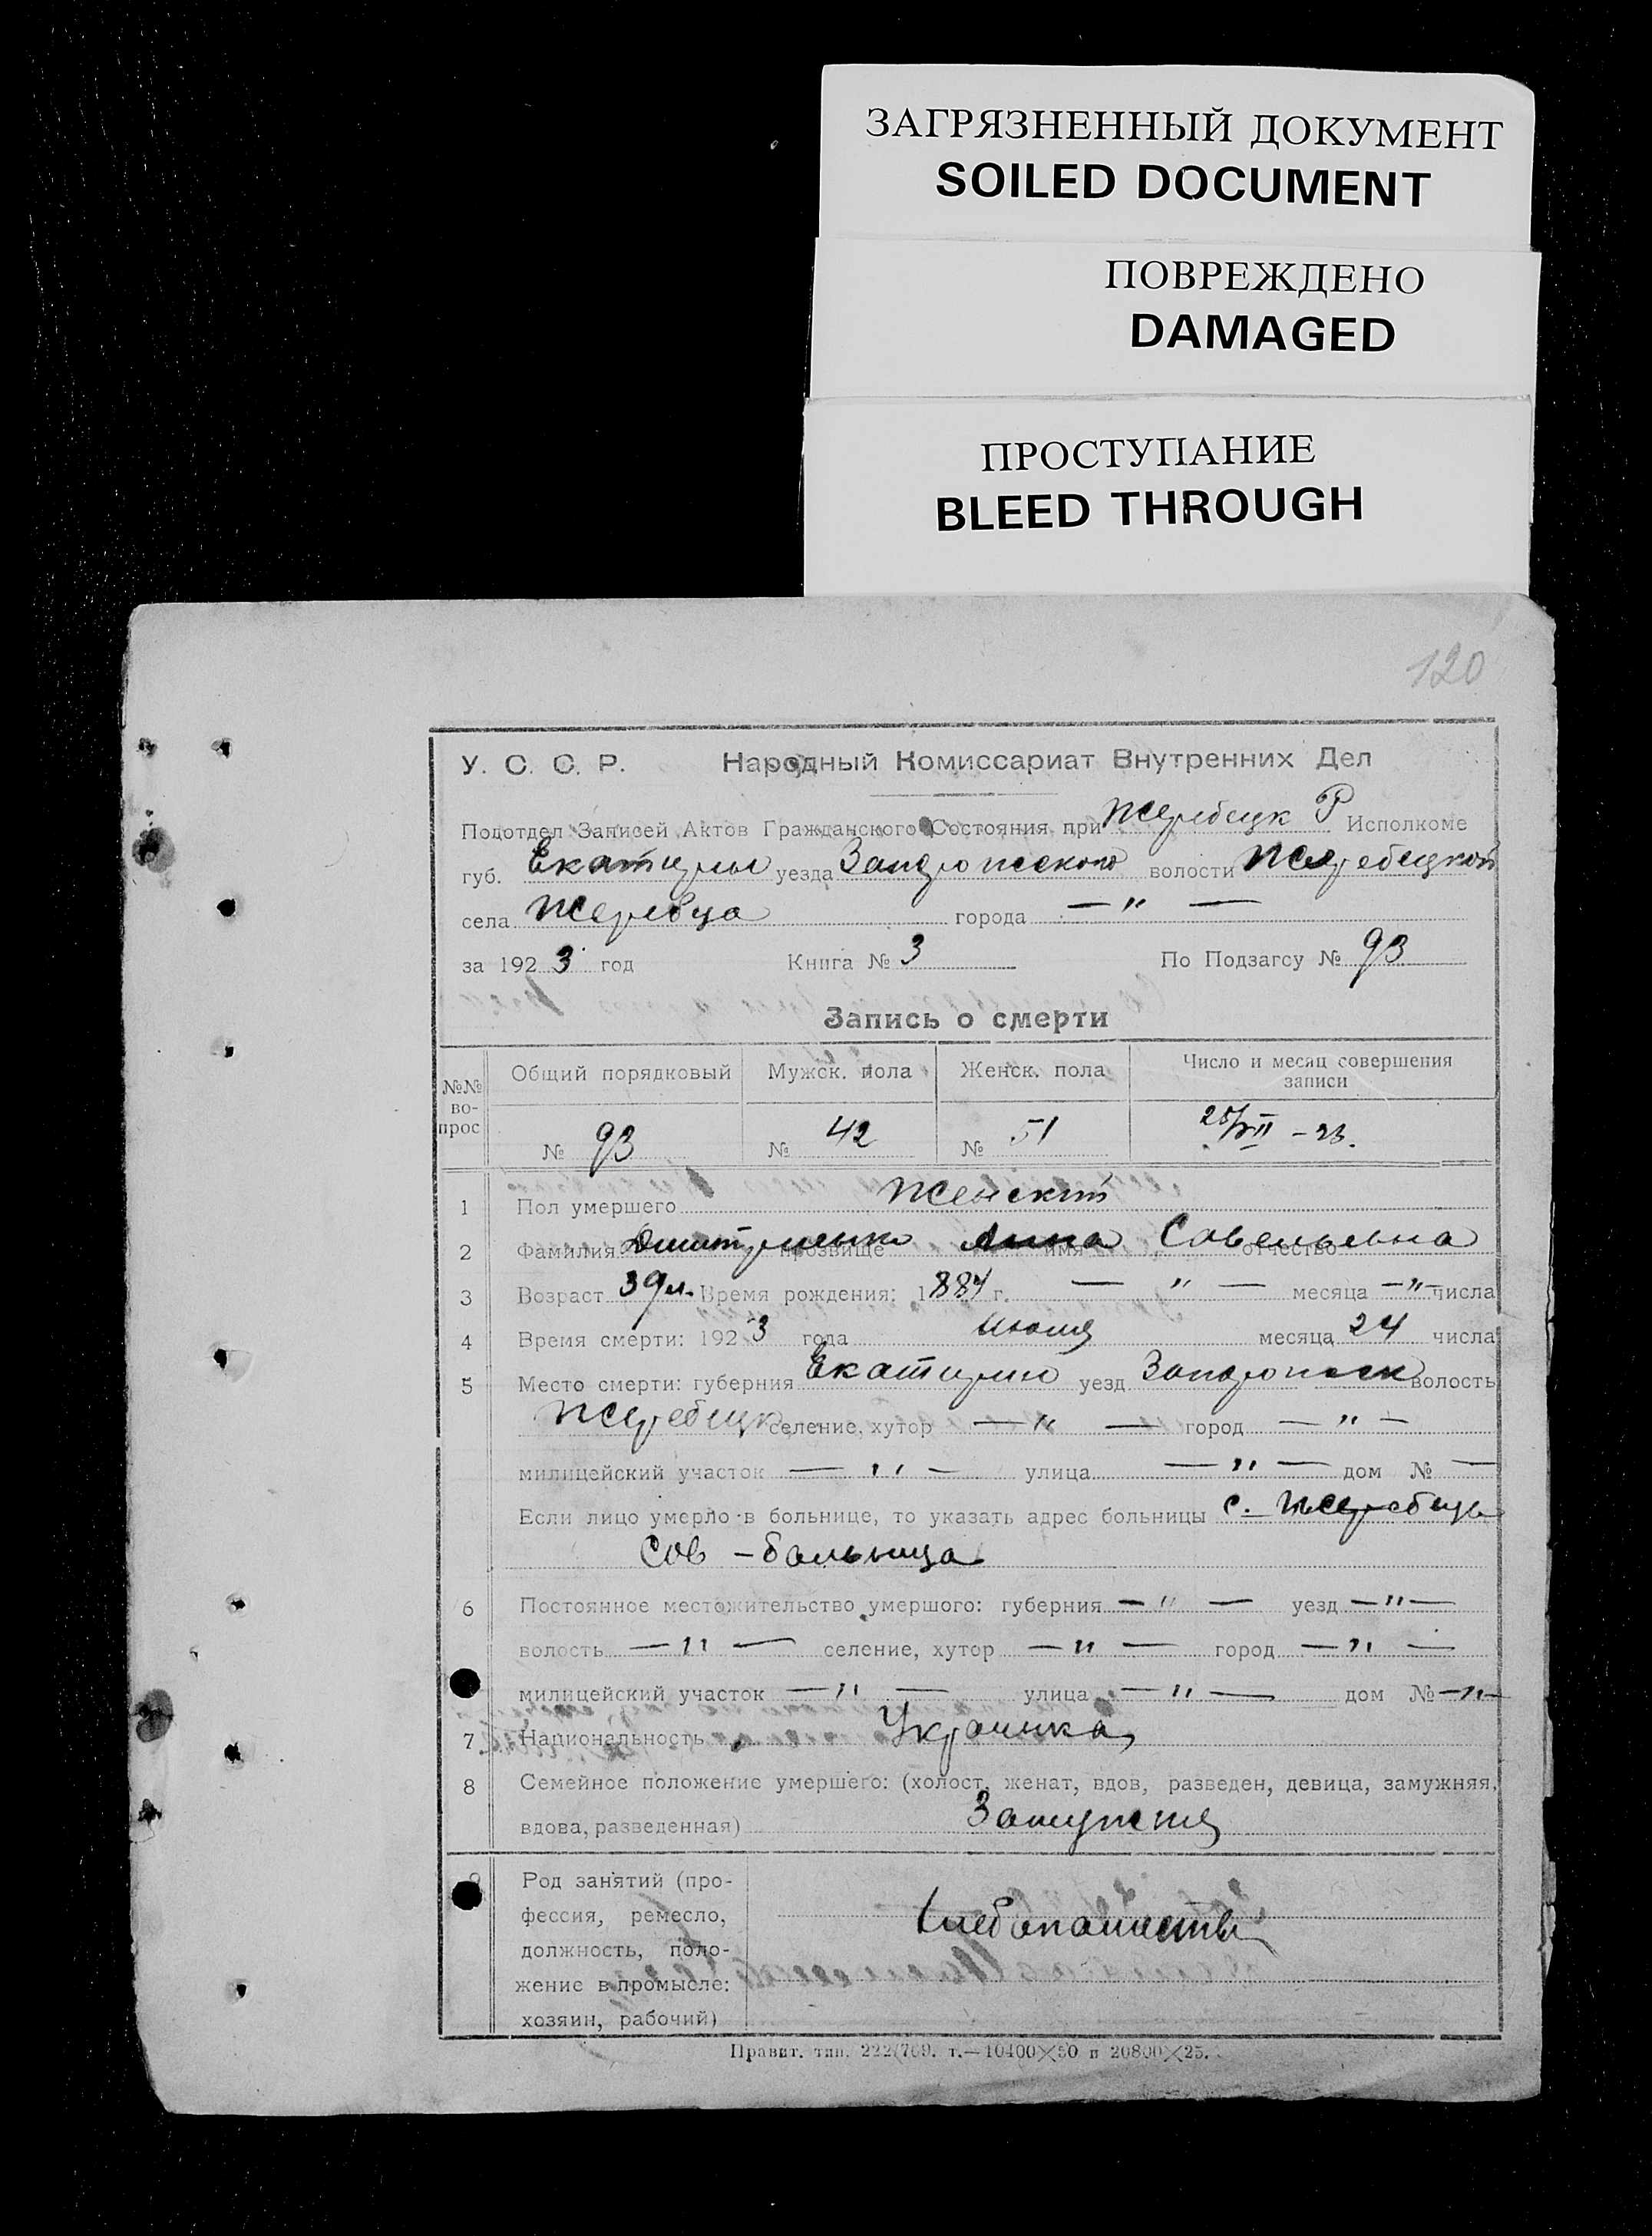 ЗАГРЯЗНЕННЫЙ ДОКУМЕНТ
SOILED DOCUMENT
ПОВРЕЖДЕНО
DAMAGED
ПРОСТУПАНИЕ
BLEED THROUGH
120
У. С. С. Р. Народный Комиссариат Внутренних Дел
Подотдел Записей Актов Гражданского Состояния при Жеребецк Р Исполкоме
губ. Екатерины уезда Запорожского волости Жеребецкой
села Жеребца города — " —
за 1923 год Книга № 3 По Подзагсу № 93
Запись о смерти
№№ во-прос Общий порядковый Мужск. пола Женск. пола Число и месяц совершения записи
№ 93 № 42 № 51 25/VII – 23.
1 Пол умершего Женский
2 Фамилия прозвище Анна имя Савельевна отчество
3 Возраст 39 л. Время рождения: 1884 г. — " — месяца — " — числа
4 Время смерти: 1923 года июля месяца 24 числа
5 Место смерти: губерния Екатерино уезд Запорожск волость
Жеребецк селение, хутор — " — город — " —
милицейский участок — " — улица — " — дом № —
Если лицо умерло в больнице, то указать адрес больницы с. Жеребец
Сов – больница
6 Постоянное местожительство умершого: губерния — " — уезд — " —
волость — " — селение, хутор — " — город — " —
милицейский участок — " — улица — " — дом № — " —
7 Национальность Украинка
8 Семейное положение умершего: (холост, женат, вдов, разведен, девица, замужняя,
вдова, разведенная) Замужняя
9 Род занятий (про-
фессия, ремесло,
должность, поло-
жение в промысле:
хозяин, рабочий)
Хлебопашество
Правит. тип. 222/709. т.—10400×50 и 20800×25.